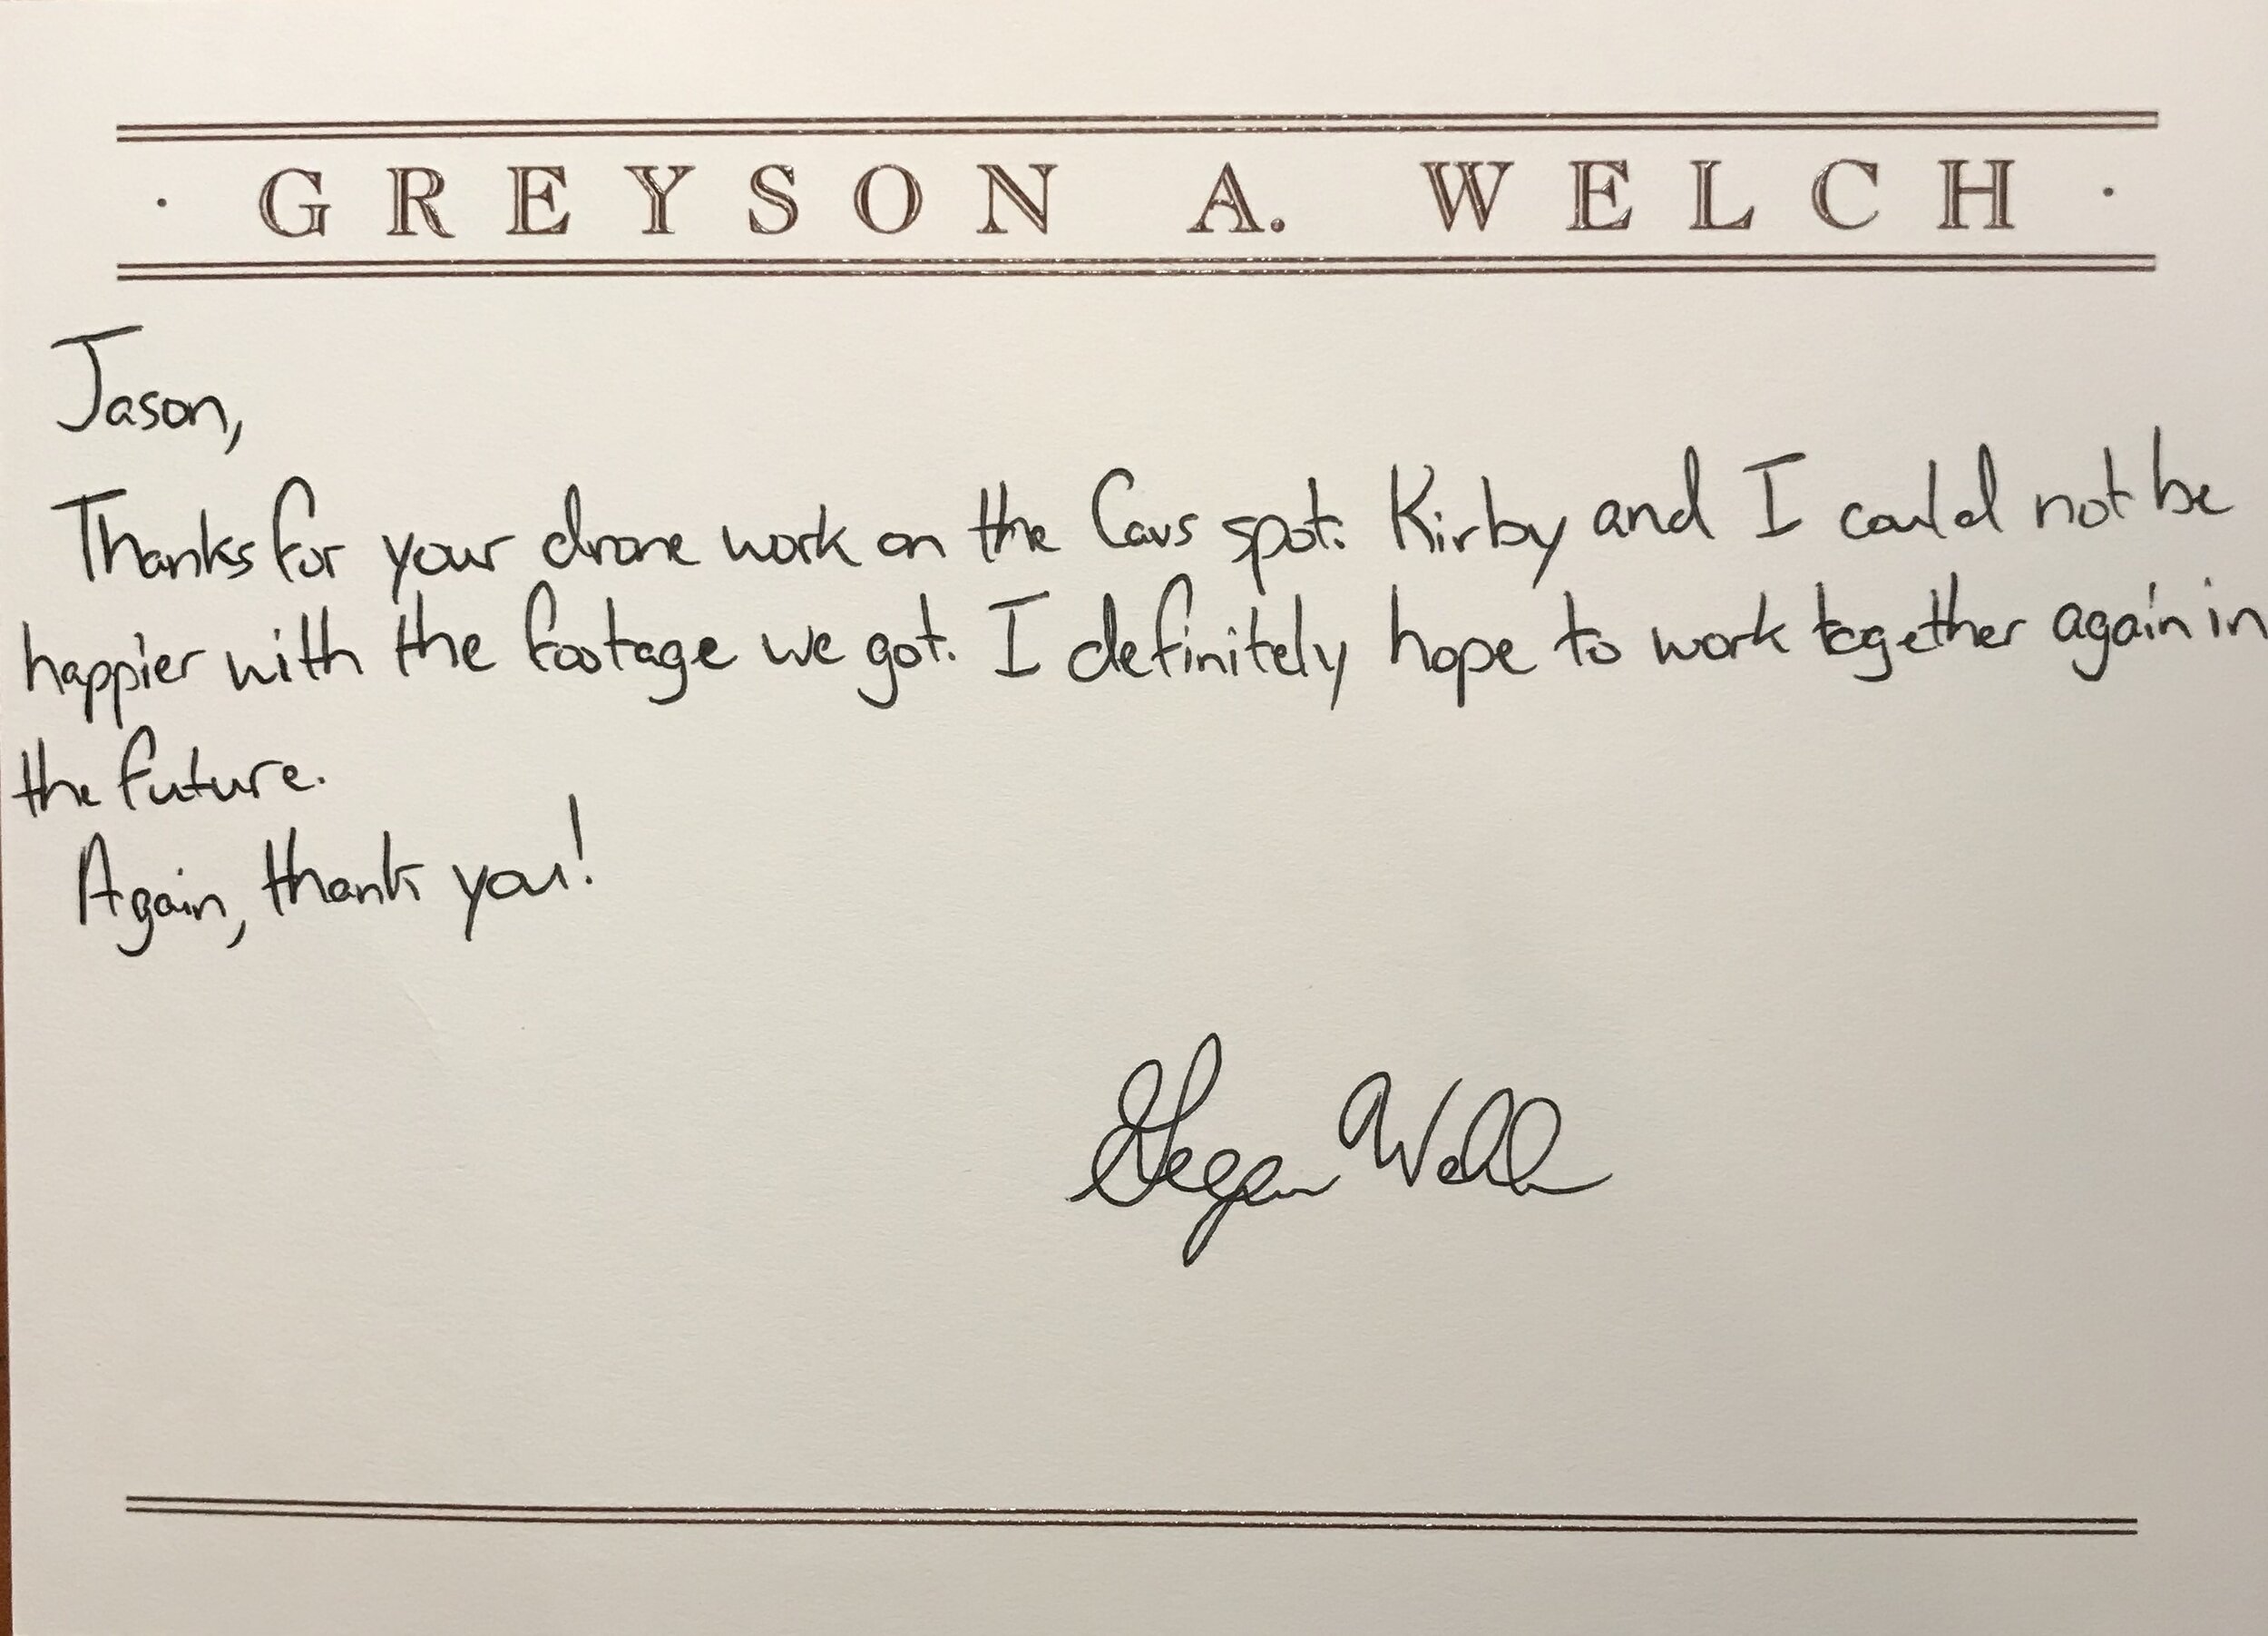 · GREYSON A. WELCH ·
Jason,
Thanks for your drone work on the Cavs spot. Kirby and I could not be
happier with the footage we got. I definitely hope to work together again in
the future.
Again, thank you!
Greyson Welch